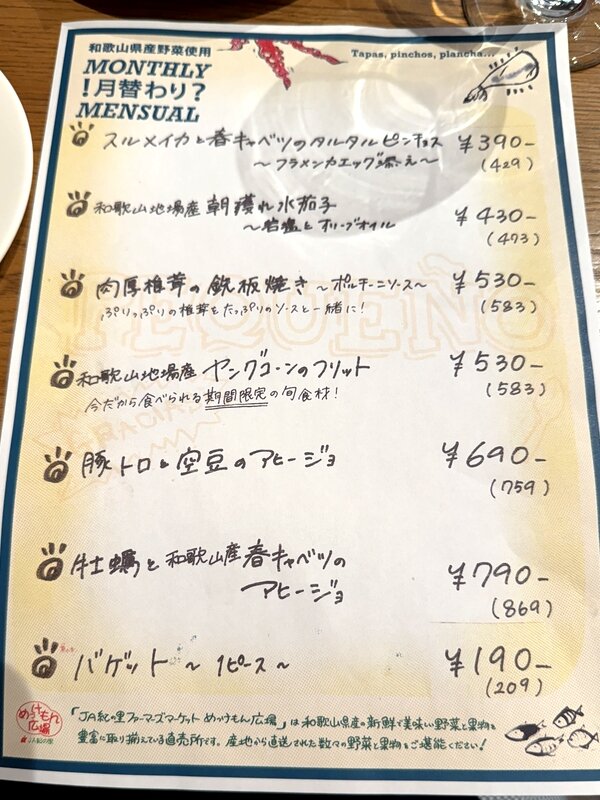 和歌山県産野菜使用
MONTHLY
!月替わり?
MENSUAL
Tapas, pinchos, plancha...
スルメイカと春キャベツのタルタルピンチョス ¥390-
〜フラメンカエッグ添え〜 (429)
和歌山地場産 朝穫れ水茄子 ¥430-
〜岩塩とオリーブオイル (473)
肉厚椎茸の鉄板焼き〜ポルチーニソース〜 ¥530-
ぷりっぷりの椎茸をたっぷりのソースと一緒に! (583)
和歌山地場産 ヤングコーンのフリット ¥530-
今だから食べられる期間限定の旬食材! (583)
豚トロと空豆のアヒージョ ¥690-
(759)
牡蠣と和歌山産春キャベツの ¥790-
アヒージョ (869)
バゲット〜1ピース〜 ¥190-
(209)
PEQUEÑO
めっけもん
広場
JA紀の里
「JA紀の里ファーマーズマーケット めっけもん広場」は和歌山県産の新鮮で美味しい野菜と果物を
豊富に取り揃えている直売所です。産地から直送された数々の野菜と果物をご堪能ください!